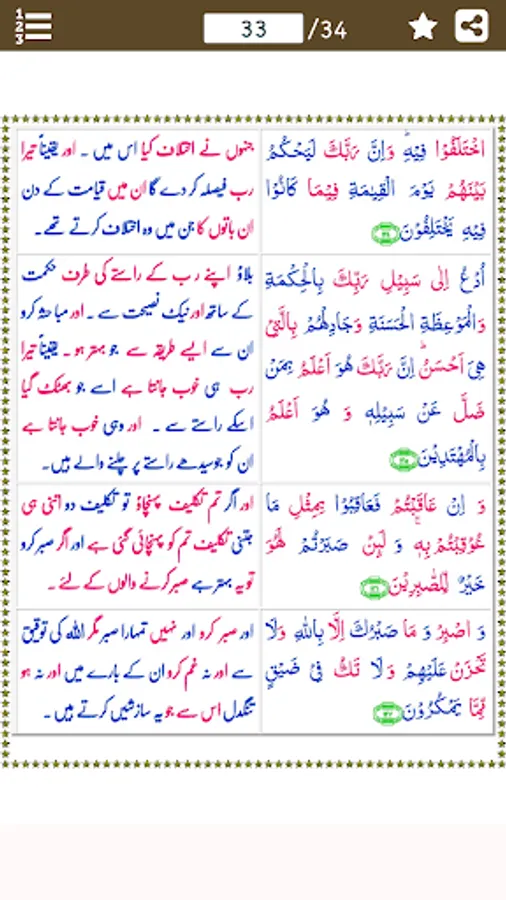 1
2
3
33 /34
اخْتَلَفُوْا فِيْهِ ۚ وَاِنَّ رَبَّكَ لَيَحْكُمُ
بَيْنَهُمْ يَوْمَ الْقِيٰمَةِ فِيْمَا كَانُوْا
فِيْهِ يَخْتَلِفُوْنَ
جنہوں نے اختلاف کیا اس میں ۔ اور یقیناً تیرا
رب فیصلہ کر دے گا ان میں قیامت کے دن
ان باتوں کا جن میں وہ اختلاف کرتے تھے۔
اُدْعُ اِلٰى سَبِيْلِ رَبِّكَ بِالْحِكْمَةِ
وَالْمَوْعِظَةِ الْحَسَنَةِ وَجَادِلْهُمْ بِالَّتِيْ
هِيَ اَحْسَنُ ؕ اِنَّ رَبَّكَ هُوَ اَعْلَمُ بِمَنْ
ضَلَّ عَنْ سَبِيْلِهٖ وَ هُوَ اَعْلَمُ
بِالْمُهْتَدِيْنَ
بلاؤ اپنے رب کے راستے کی طرف حکمت
کے ساتھ اور نیک نصیحت سے ۔ اور مباحثہ کرو
ان سے ایسے طریقہ سے جو بہتر ہو۔ یقیناً تیرا
رب ہی خوب جانتا ہے اسے جو بھٹک گیا
اسکے راستے سے ۔ اور وہی خوب جانتا ہے
ان کو جو سیدھے راستے پر چلنے والے ہیں۔
وَ اِنْ عَاقَبْتُمْ فَعَاقِبُوْا بِمِثْلِ مَا
عُوْقِبْتُمْ بِهٖ ؕ وَ لَىِٕنْ صَبَرْتُمْ لَهُوَ
خَيْرٌ لِّلصّٰبِرِيْنَ
اور اگر تم تکلیف پہنچاؤ تو تکلیف دو اتنی ہی
جتنی تکلیف تم کو پہنچائی گئی ہے اور اگر صبر کرو
تو یہ بہتر ہے صبر کرنے والوں کے لئے ۔
وَ اصْبِرْ وَ مَا صَبْرُكَ اِلَّا بِاللّٰهِ وَلَا
تَحْزَنْ عَلَيْهِمْ وَلَا تَكُ فِيْ ضَيْقٍ
مِّمَّا يَمْكُرُوْنَ
اور صبر کرو اور نہیں تمہارا صبر مگر اللہ کی توفیق
سے اور نہ غم کرو ان کے بارے میں اور نہ ہو
تنگدل اس سے جو یہ سازشیں کرتے ہیں ۔